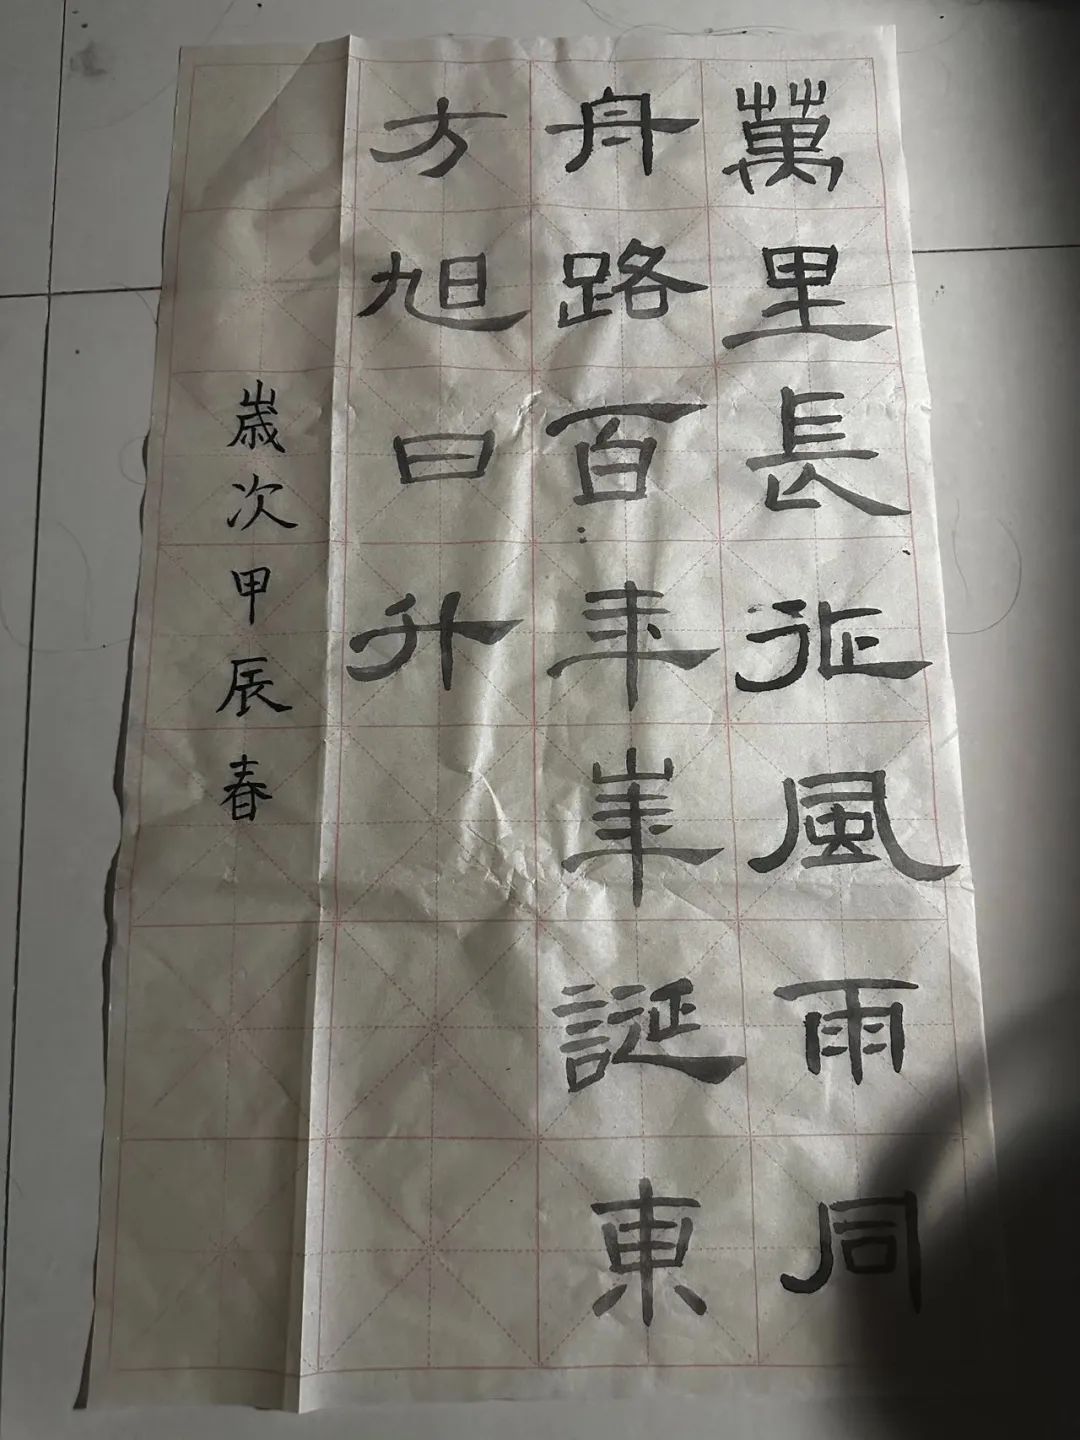 萬里長征風雨同
舟路百年崋誕東
方旭日升
嵗次甲辰春